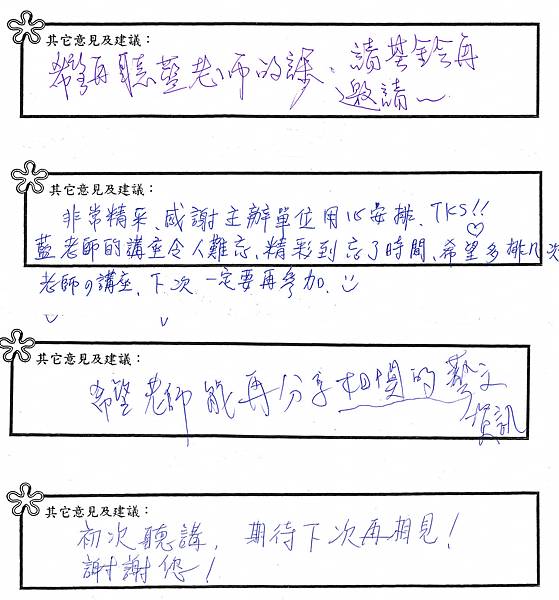 其它意見及建議：
希望再聽藍老師的課，請基金會再
邀請～
其它意見及建議：
非常精采、感謝主辦單位用心安排、TKS!!
藍老師的講座令人難忘、精彩到忘了時間、希望多排几次
老師の講座、下次一定要再參加、
其它意見及建議：
希望老師能再分享相関的藝文
資訊
其它意見及建議：
初次聽講，期待下次再相見！
謝謝您！